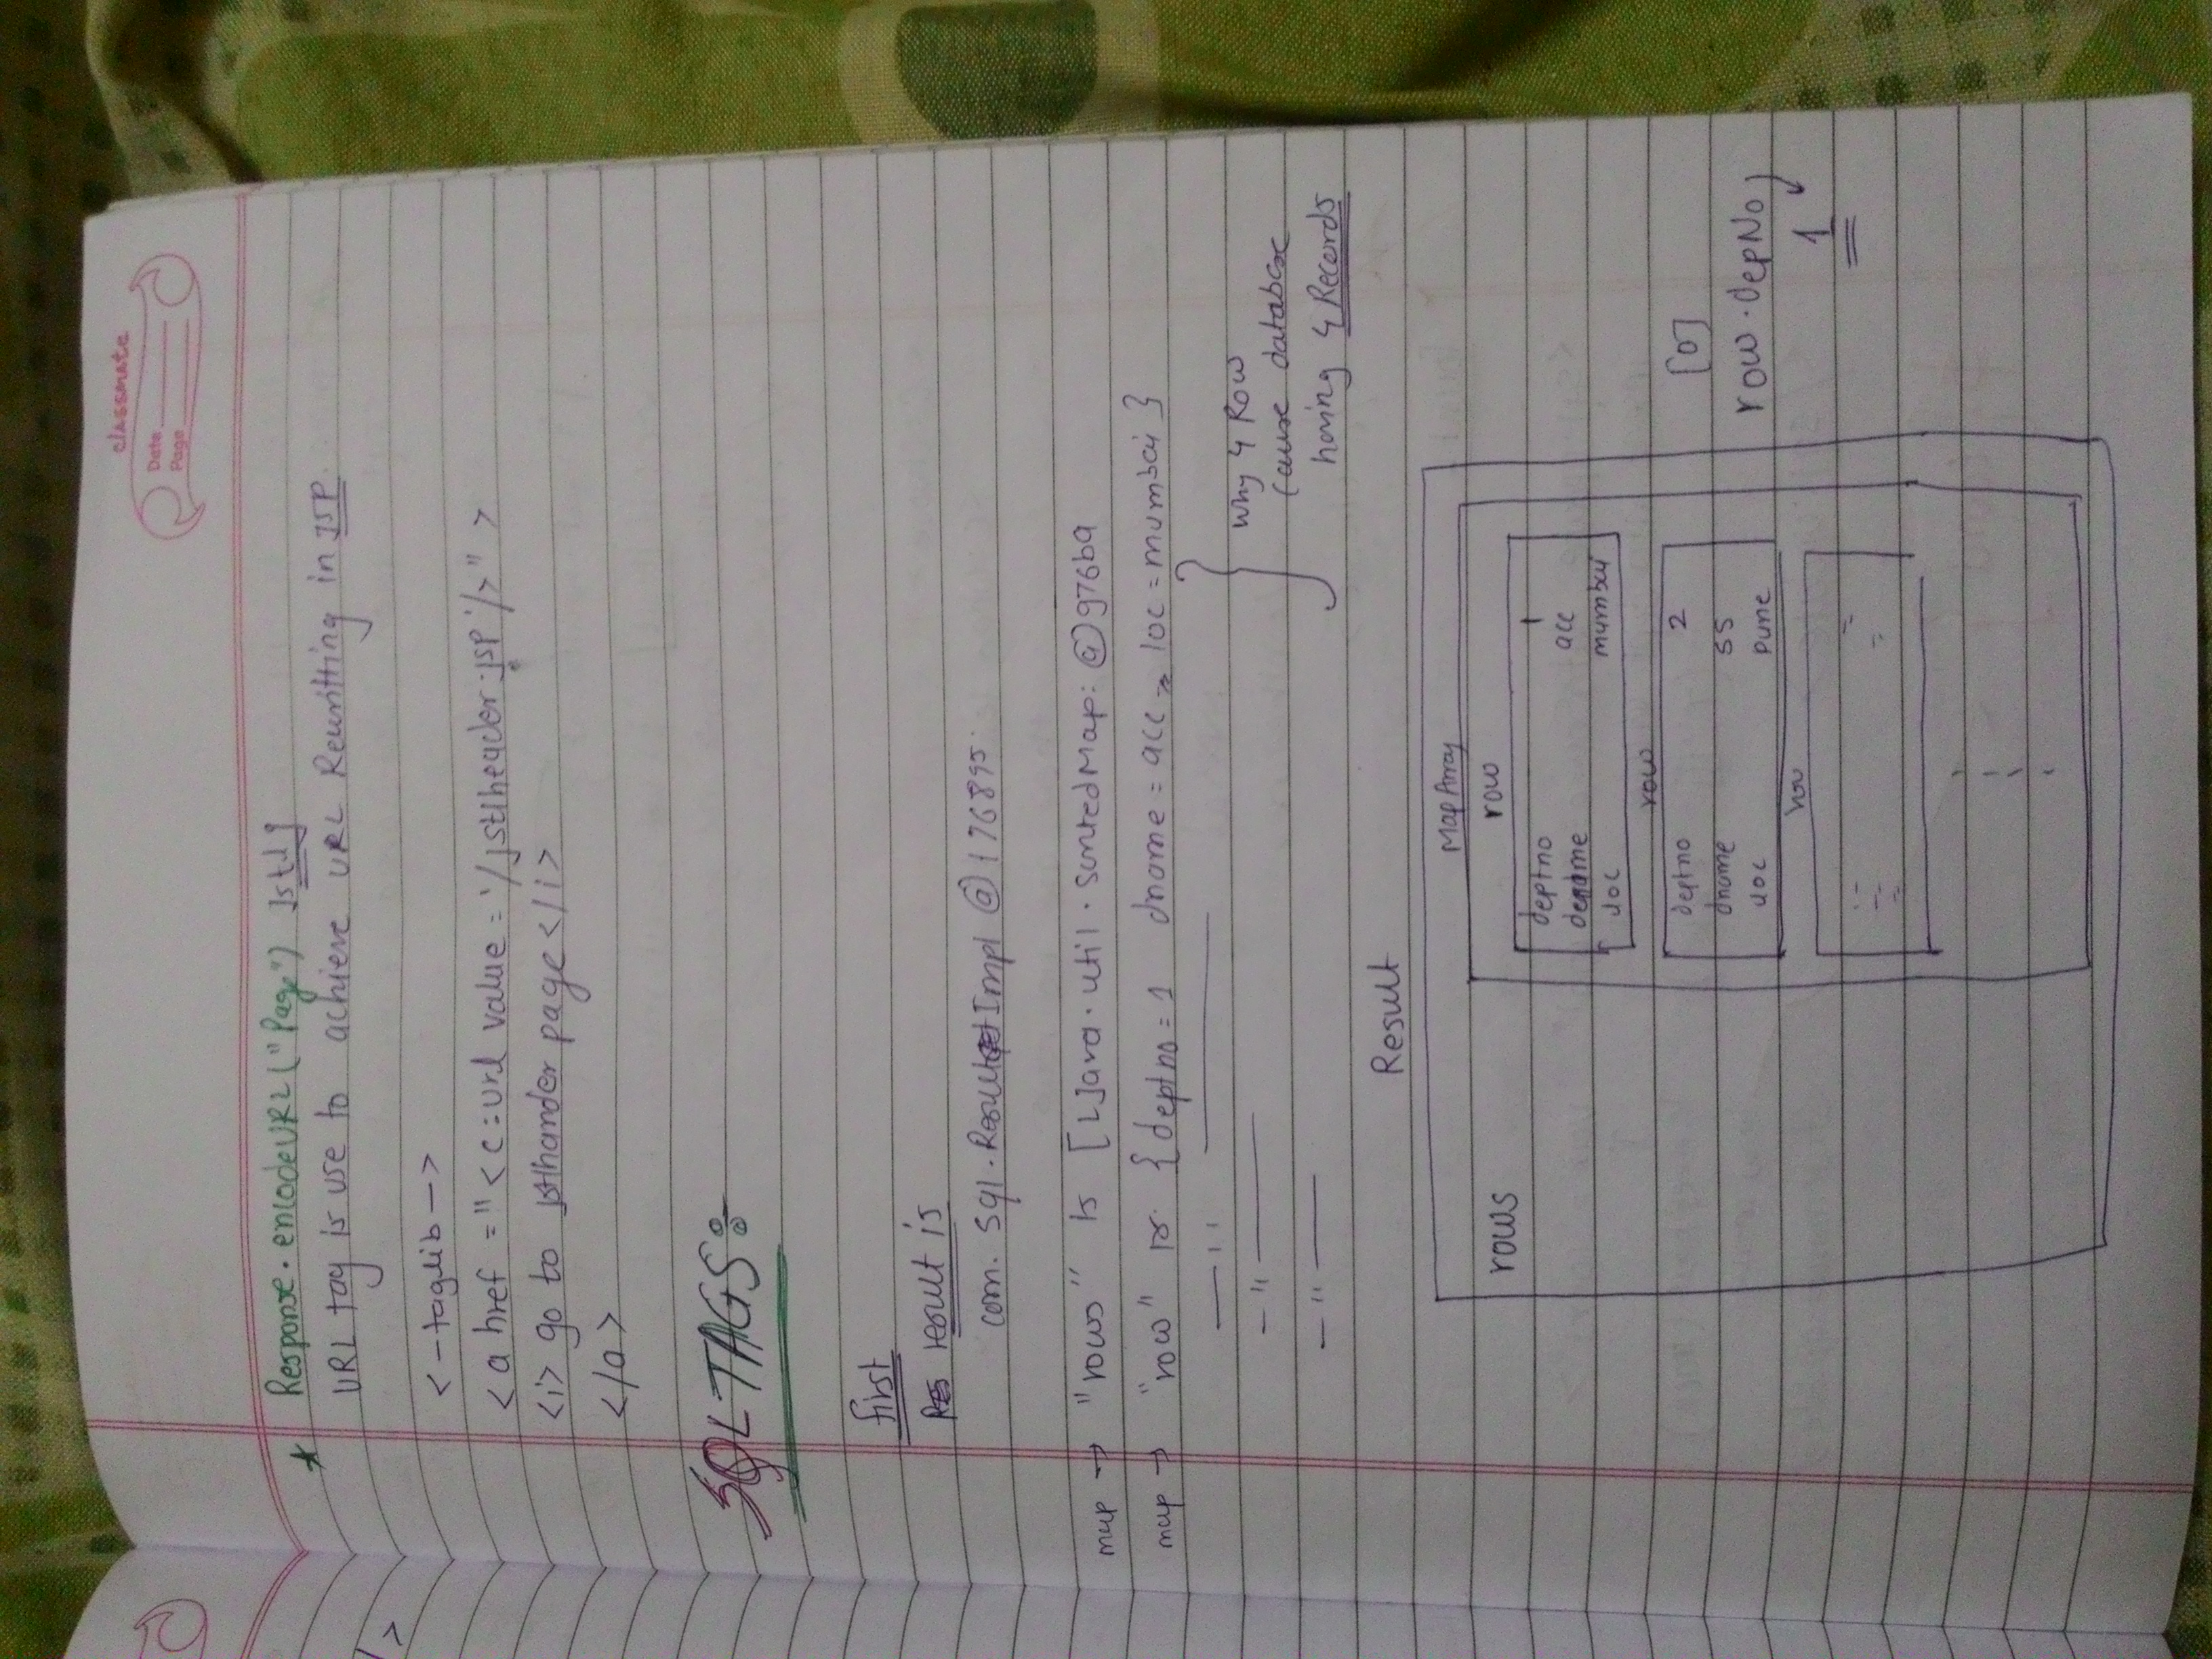 classmate
Date
Page
Response.encodeURL("Page") jstl]
URL tag is use to achieve URL Rewritting in JSP.
<-taglib->
<a href ="<c:url value='/jstlheader.jsp'/>" >
<i> go to jstlhander page</i>
</a>
SQL TAGS:-
first
result is
com. sql.ResultImpl @176895
map → "rows" is [LJava.util.SortedMap: @976b9
map → "row" is {deptno=1 dname=acc, loc=mumbai}
— " —
— " —
— " —
why 4 Row
cause database
having 4 Records
Result
Map Array
rows
row
deptno 1
dname acc
loc mumbai
row
deptno 2
dname ss
loc pune
row
[0]
row.depNo
1
/>